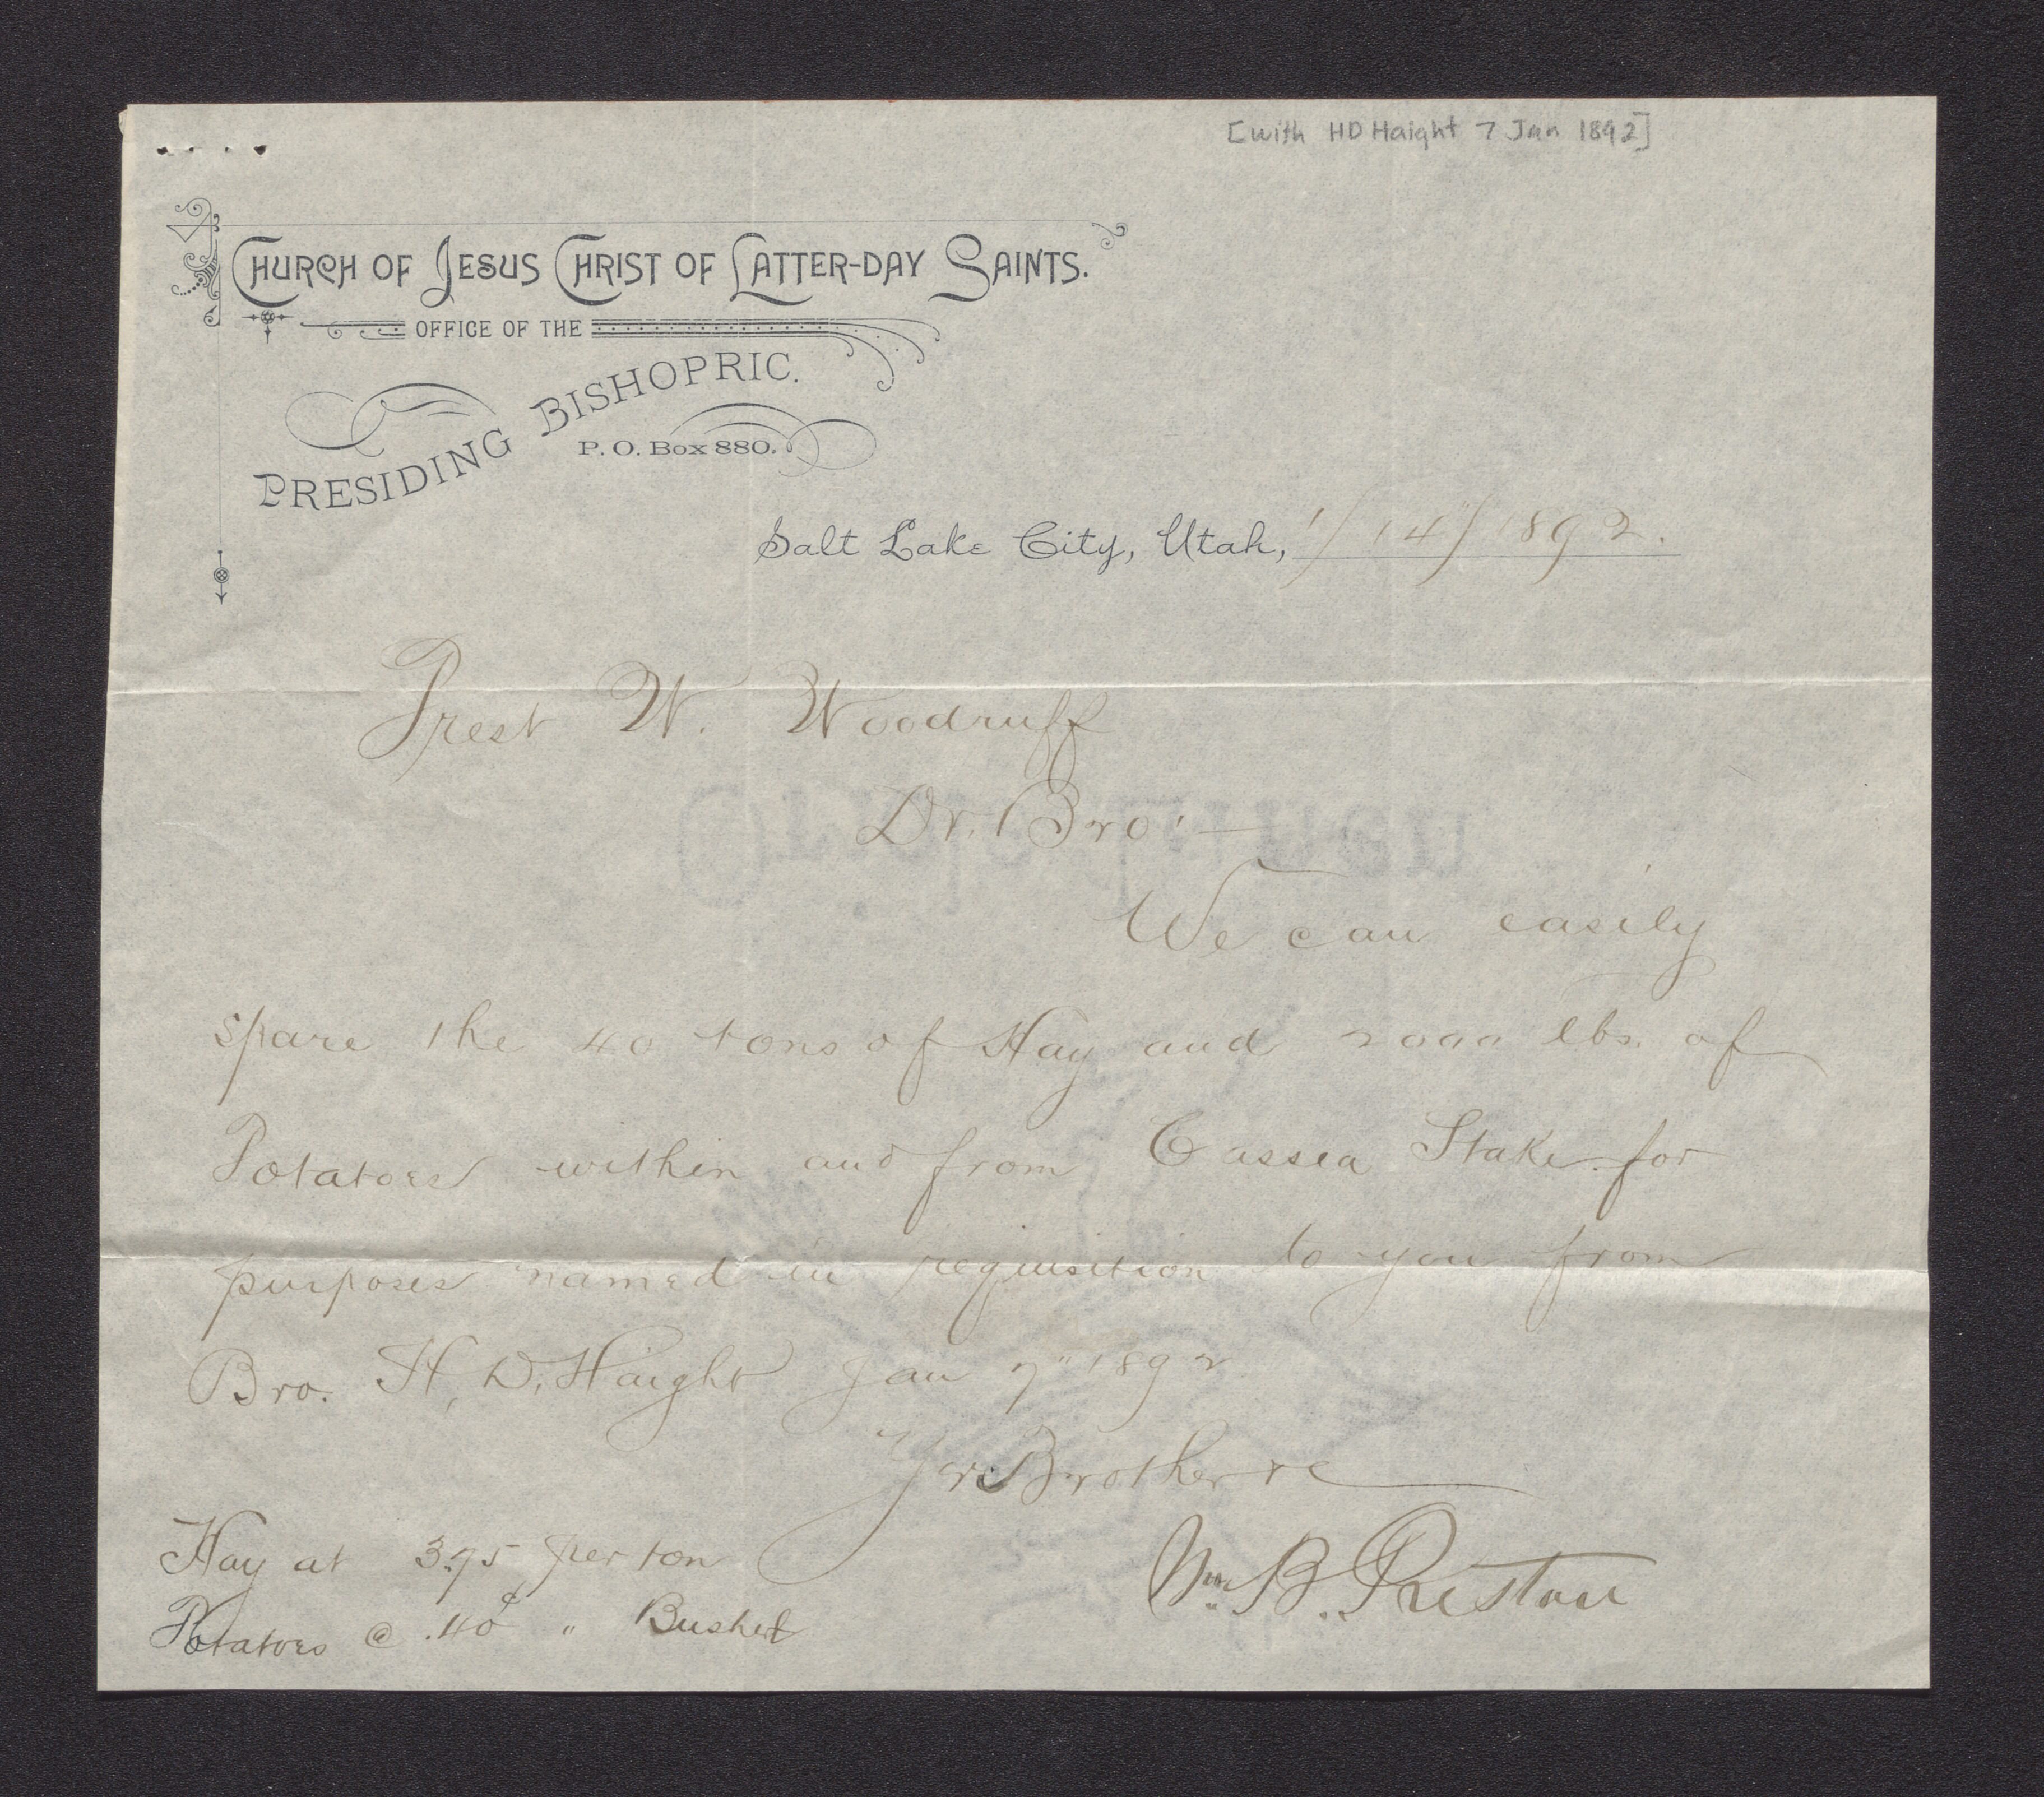 [with HD Haight 7 Jan 1892]
CHURCH OF JESUS CHRIST OF LATTER-DAY SAINTS.
OFFICE OF THE
PRESIDING BISHOPRIC.
P. O. Box 880.
Salt Lake City, Utah, 1/14"/1892.
Prest W. Woodruff
Dr. Bro:—
We can easily
spare the 40 tons of Hay and 2000 lbs. of
Potatoes within and from Cassia Stake for
purposes named in requisition to you from
Bro. H. D. Haight Jan 7" 1892
Yr Brother &c
Wm. B. Preston
Hay at 3.75 per ton
Potatoes @ .40¢ " Bushel